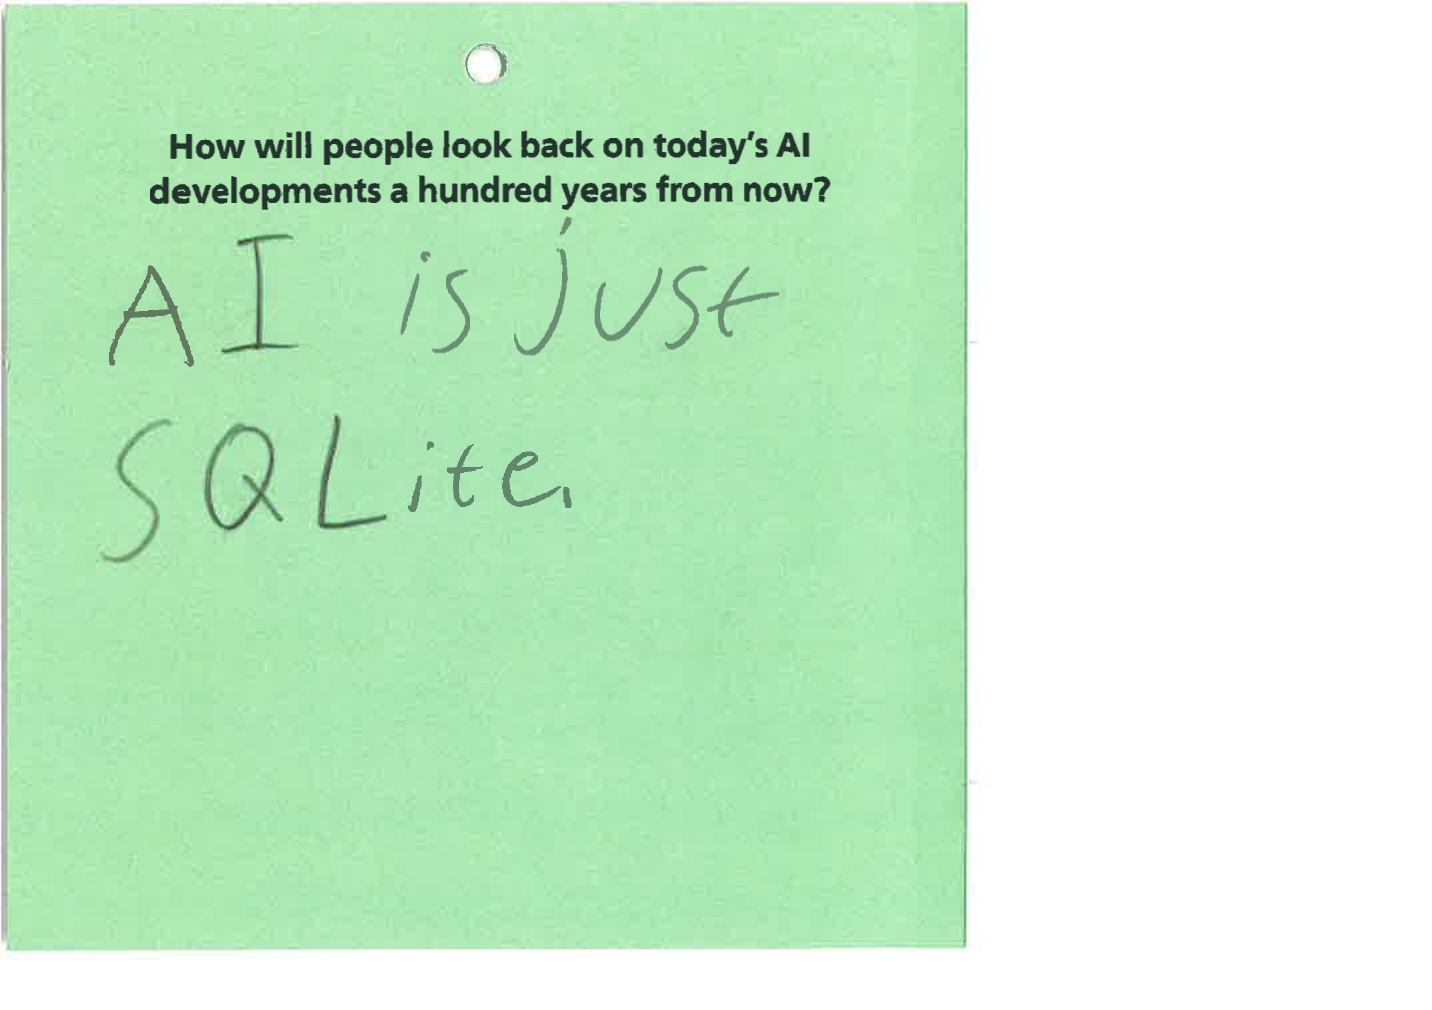 How will people look back on today's AI
developments a hundred years from now?
AI is just
SQLite.